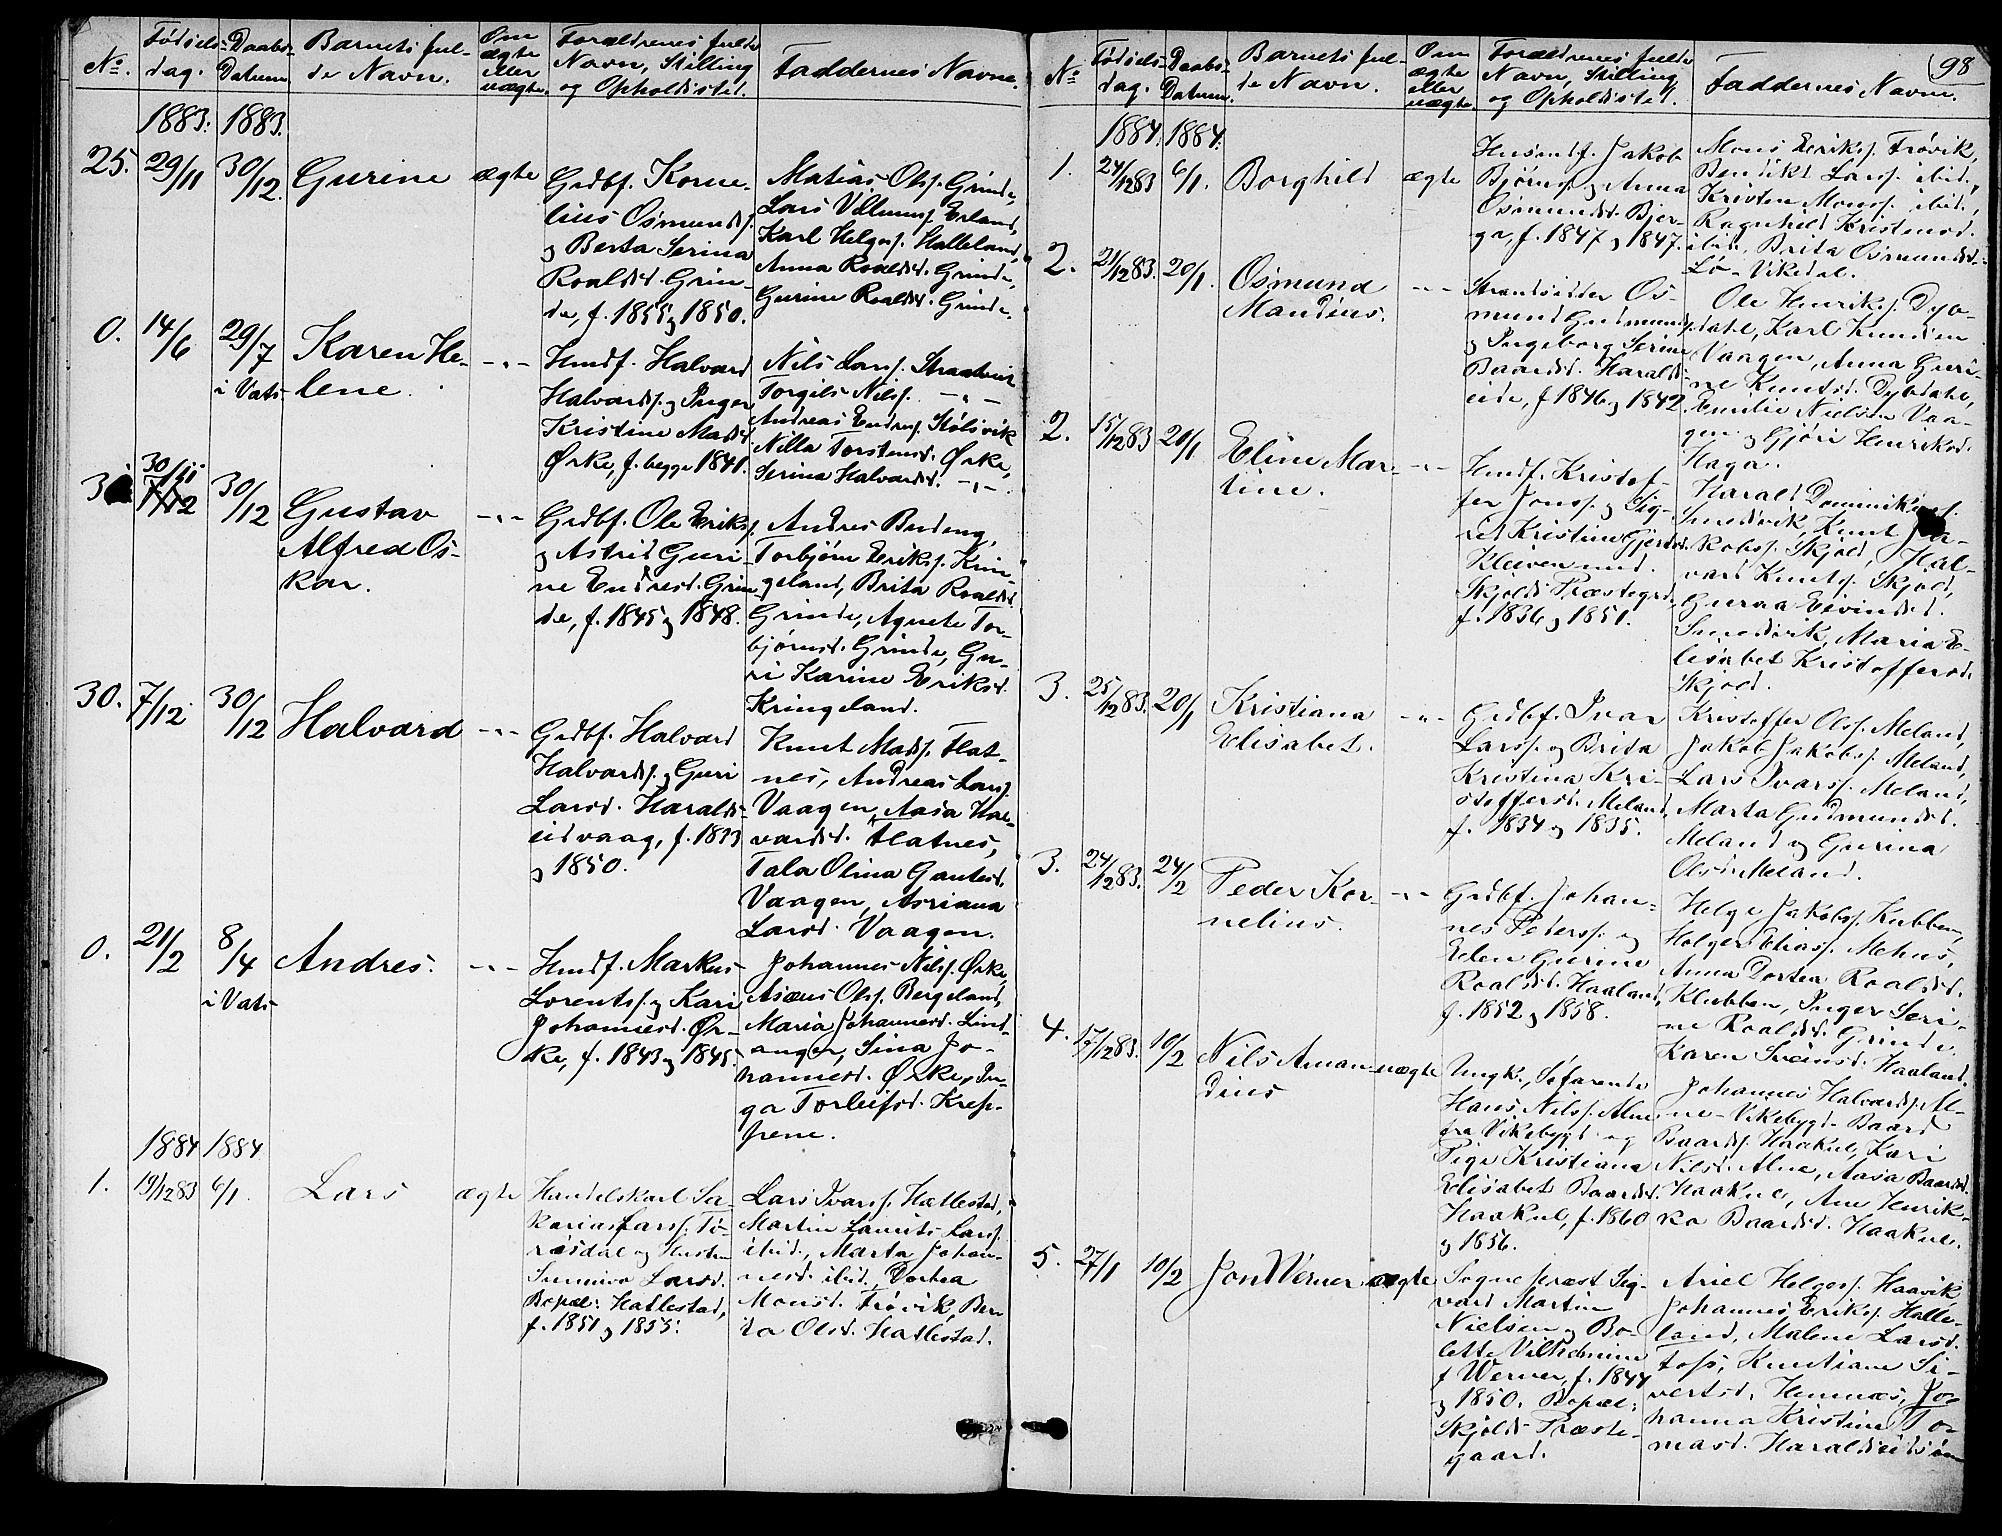 No.
Fødsels-
dag.
Daabs-
Datum
Barnets ful-
de Navn.
Om
ægte
eller
uægte.
Forældrenes fulde
Navn, Stilling
og Opholdssted.
Faddernes Navne.
1883. 1883.
25. 29/11 30/12. Gurine ægte
Grdbf. Korne-
lius Osmunds.
og Berta Serina
Roaldsd. Grin-
de, f. 1855 og 1850.
Matias Ols. Grinde,
Lars Villums. Erland,
Karl Helges. Halleland,
Anna Roaldsd. Grinde,
Gurine Roaldsd. Grinde.
0. 14/6 29/7
i Vats
Karen He-
lene.
-"-
Hmdf. Halvard
Halvards. og Inger
Kristine Madsd.
Ørke, f. begge 1841.
Nils Larss.
Torgils Nilss. -"-
Andreas Endres. Stølsvik
Nilla Torstensd. Ørke,
Serina Halvardsd. -"-
30/11
7/12
30/12
Gustav
Alfred Os-
kar.
-"-
Grdbf. Ole Eriks.
og Astrid Guri-
ne Endresd. Grin-
de, f. 1845 og 1848.
Andres Budeng,
Torbjørn Eriks. Krin-
geland, Brita Roaldsd.
Grinde, Agnete Tor-
bjørnsd. Grinde, Gu-
ri Karine Eriksd.
Kringeland.
30. 7/12. 30/12 Halvard -"-
Grdbf. Halvard
Halvards. og Guri
Larsd. Haralds-
eidvaag, f. 1813
og 1850.
Knut Mads. Flat-
nes, Andreas Larss.
Vaagen, Aasa Hal-
vardsd. Flatnes,
Tala Olina Gautesd.
Vaagen, Asriana
Larsd. Vaagen.
0. 21/2 8/4
i Vats
Andres. -"-
Hmdf. Markus
Lorents. og Kari
Johannesd. Ør-
ke, f. 1843 og 1845.
Johannes Nils. Ørke,
Asæus Ols. Bergeland,
Maria Johannesd. Lind-
anger, Sina Jo-
hannesd. Ørke, In-
ga Torleifsd. Krep-
pene.
1884 1884
1. 19/12 83 6/1. Lars ægte
Handelskarl Sa-
karias Larss. Ti-
rasdal og Hustru
Sunniva Larsd.
Bopæl: Hatlestad,
f. 1851 og 1855.
Lars Ivars. Hatlestad,
Martin Laurits Larss.
ibid., Marta Johan-
nesd. ibid., Dorthea
Monsd. Frøvik, Ber
ta Olsd. Hatlestad.
98
No
Fødsels-
dag.
Daabs-
Datum.
Barnets ful-
de Navn.
Om
ægte
eller
uægte.
Forældrenes fulde
Navn, Stilling
og Opholdssted.
Faddernes Navne.
1884. 1884.
1. 24/12 83 6/1. Borghild ægte
Husmdf. Jakob
Bjørns. og Anna
Osmundsd. Bjer-
ga, f. 1847 og 1847.
Mons Eriks. Frøvik,
Bendikt Larss. ibid.,
Kristen Monss. ibid.,
Ragnhild Kristensd.
ibid., Brita Osmundsd.
Lø - Vikedal.
2. 21/12 83. 20/1. Osmund
Mandius.
-"-
Strandsidder Os-
mund Gudmunds.
og Ingeborg Serine
Baardsd. Haralds-
eide, f 1846 og 1842
Ole Henriks. Dyb-
dahl, Karl Knudsen
Vaagen, Anna Guri-
ne Knutsd. Dybdahl,
Emilie Nielsen Vaa-
gen og Gjøri Henriksd.
Haga.
2. 15/12 83 20/1 Eline Mar-
tine.
-"-
Hmdf. Kristof-
fer Jonss. og Sig-
rid Kristine Gjertsd.
Kleiven und.
Skjolds Præstegrd.
f. 1836 og 1851.
Harald Dominikus.
Smedsvik, Knut Ja-
kobs. Skjold, Hal-
vard Knuts. Skjold,
Guraa Eivindsd.
Smedsvik, Maria E-
lisabet Kristoffersd.
Skjold.
3. 25/12 83. 20/1 Kristiana
Elisabet.
-"-
Grdbf. Ivar
Larss. og Brita
Kristina Kri-
stoffersd. Meland,
f. 1834 og 1835.
Kristoffer Ols. Meland,
Jakob Jakobs. Meland,
Lars Ivars. Meland,
Marta Gudmundsd.
Meland og Gurina
Olsd. Meland.
3. 24/12 83. 24/2 Peder Kor-
nelius.
-"-
Grdbf. Johan-
nes Peders. og
Elen Gurine
Roaldsd. Haaland,
f. 1852 og 1858.
Helge Jakobs. Kubben,
Holger Elias. Mehus,
Anna Dortea Roaldsd.
Klubben, Inger Seri-
ne Roaldsd. Grinde.
Karen Sveinsd. Haaland.
4. 17/12 83. 10/2 Nils Aman-
dius
uægte
Ungk., Søfarende
Hans Nils. Alne
fra Vikebygd og
Pige Kristiana
Elisabet Baardsd.
Haakul, f. 1860
og 1856.
Johannes Halvards. Al-
ne - Vikebygd - Baard
Baards. Haakul, Kari
Nilsd. Alne, Aasa Baardsd.
Haakul, Ane Henrik-
ka Baardsd. Haakul.
5. 27/1 10/2 Jon Werner ægte
Sognepræst Sig-
vard Martin
Nielsen og Bo-
lette Vilhelmine
f Werner, f. 1844
og 1850. Bopæl:
Skjolds Præste-
gaard.
Ariel Helges. Haavik
Johannes Eriks. Halle-
land, Malene Larsd.
Foss, Kristiane Si-
vertsd. Hemnæs, Jo-
hanna Kristine To-
masd. Haraldseidsøen